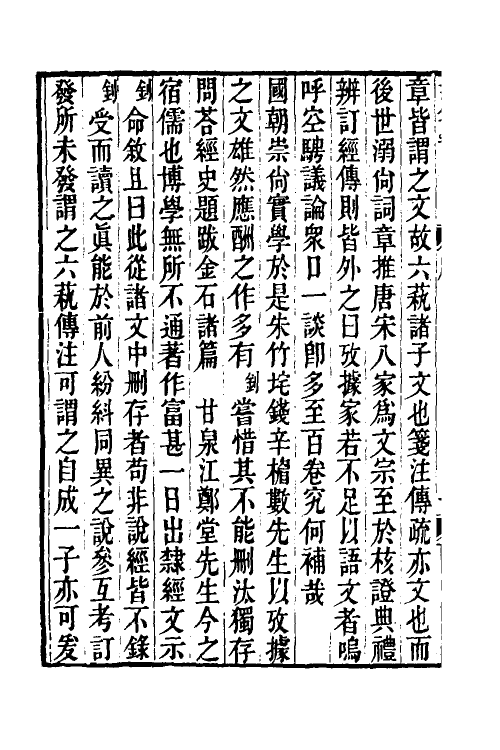 章皆謂之文故六蓺諸子文也箋注傳疏亦文也而
後世溺尙詞章推唐宋八家爲文宗至於核證典禮
辨訂經傳則皆外之曰攷據家若不足以語文者嗚
呼空騁議論衆口一談卽多至百卷究何補哉
國朝崇尙實學於是朱竹垞錢辛楣數先生以攷據
之文雄然應酬之作多有釗嘗惜其不能刪汰獨存
問荅經史題跋金石諸篇　甘泉江鄭堂先生今之
宿儒也博學無所不通著作富甚一日出隸經文示
釗命敘且曰此從諸文中刪存者苟非說經皆不錄
釗受而讀之眞能於前人紛糾同異之說參互考訂
發所未發謂之六蓺傳注可謂之自成一子亦可爰